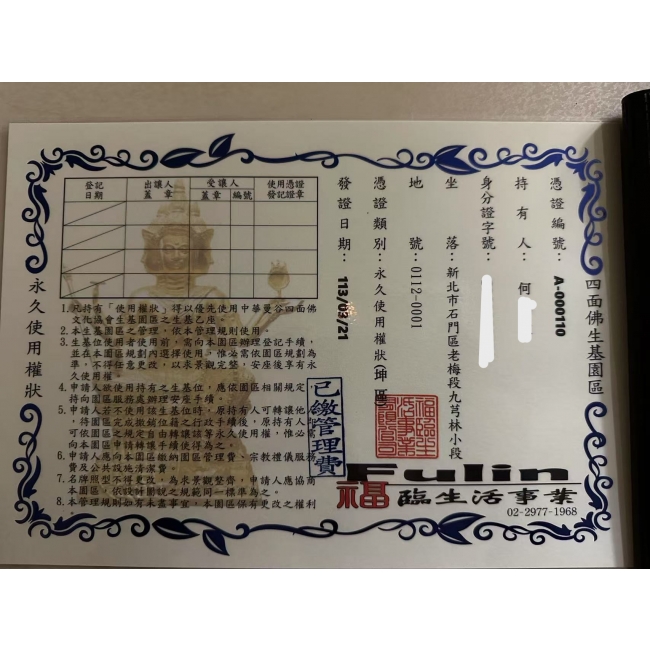 四面佛生基園區
憑證編號：A-000110
持有人：何
身分證字號：
坐落：新北市石門區老梅段九芎林小段
地號：0112-0001
憑證類別：永久使用權狀(坤區
發證日期：113/03/21
登記日期
出讓人蓋章
受讓人
蓋章
編號
使用憑證發記證章
1.凡持有「使用權狀」得以優先使用中華曼谷四面佛
文化協會生基園區之生基乙座。
2.本生基園區之管理，依本管理規則使用。
3.生基位使用者使用前，需向本園區辦理登記手續，
並在本園區規劃內選擇使用，惟必需依園區規劃為
準，不得任意更改，以求景觀完整，安座後享有永
久使用權。
4.申請人欲使用持有之生基位，應依園區相關規定，
持向園區服務處辦理安座手續。
5.申請人若不使用該生基位時，原持有人可轉讓他人
，將園區完成撤銷位籍之行政手續後，原持有人即
可依園區之規定自由轉讓該等永久使用權，惟必需
向本園區申請轉讓手續使得為之。
6.申請人應向本園區繳納園區管理費、宗教禮儀服務
費及公共設施清潔費。
7.名牌照型不得更改，為求景觀整齊，申請人應協商
本園區，依設計圖說之規範同一標準為之。
8.本管理規則如有未盡事宜，本園區保有更改之權利
已繳管理費
永久使用權狀
Fulin
福臨生活事業
02-2977-1968